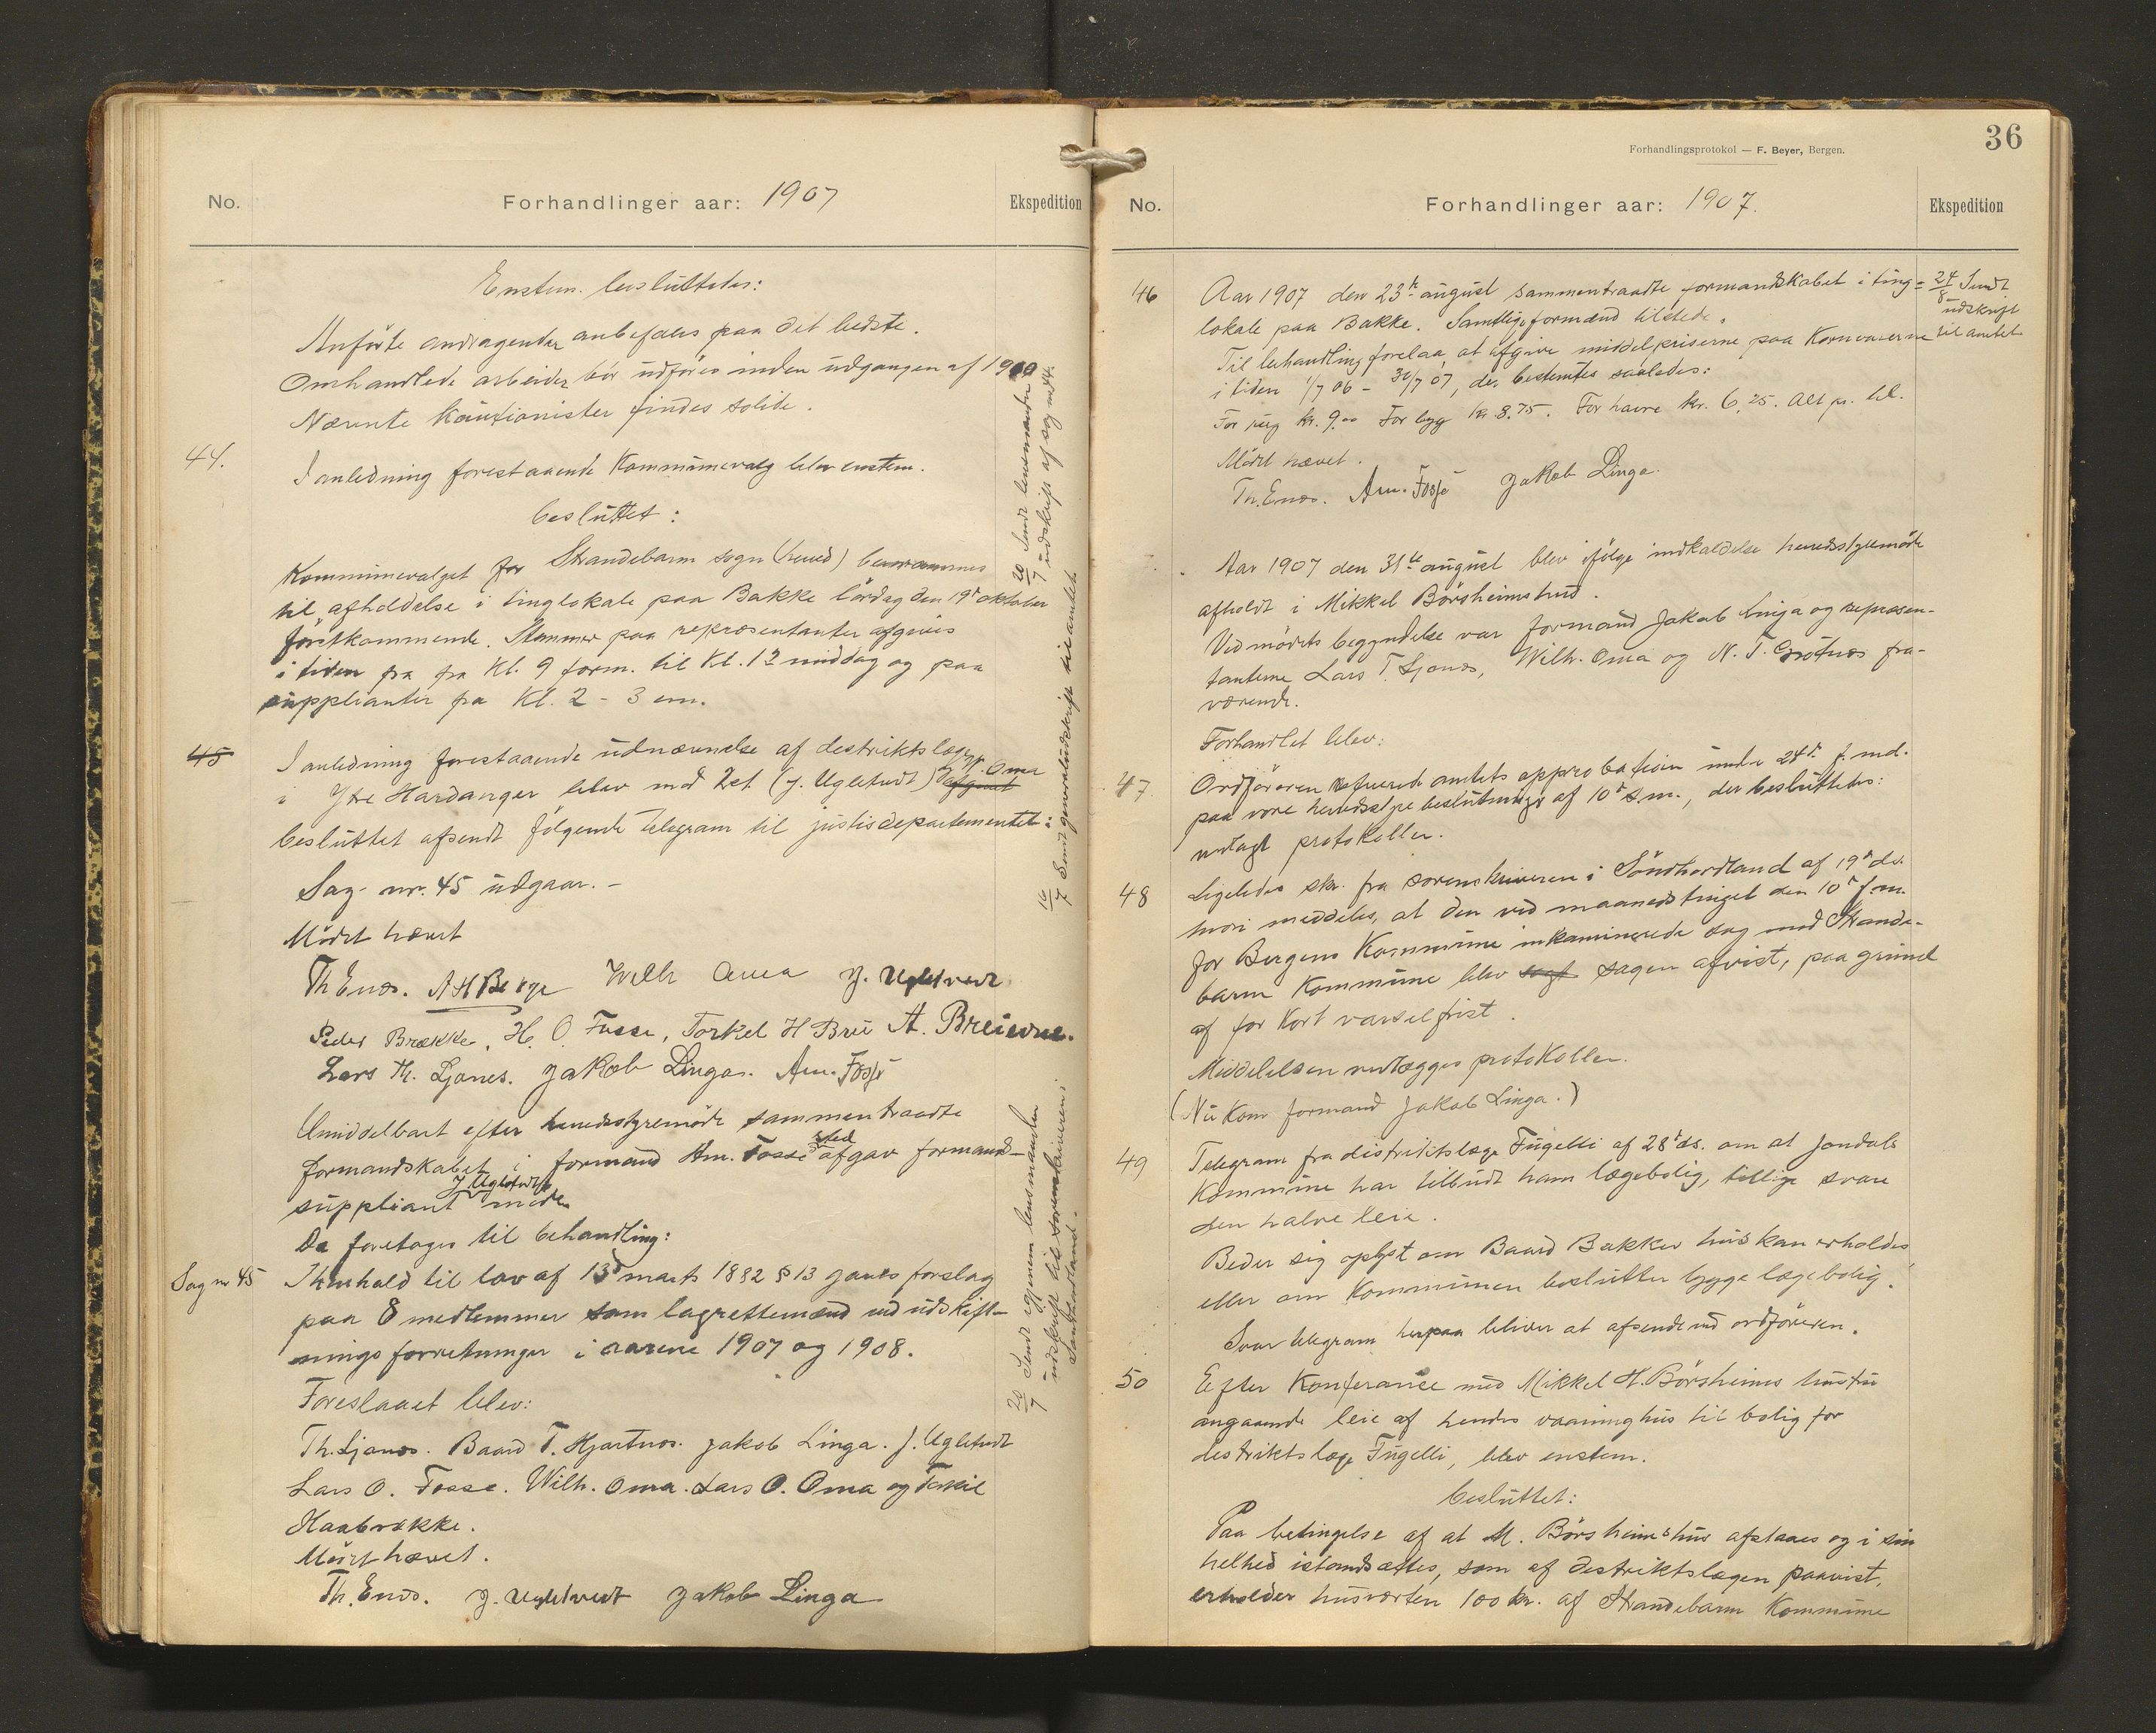 No.
Forhandlinger aar: 1907
Ekspedition
Enstem. besluttedes:
Anförte andragender anbefales paa det bedste.
Omhandlede arbeider bör udföres inden udgangen af 1910
Nævnte kautionister findes solide.
44.
I anledning forestaaende Kommunevalg blev enstem.
besluttet:
Kommunevalget for Strandebarm sogn (herred) berammes
til afholdelse i tinglokale paa Bakke lördag den 19de oktober
förstkommende. Stemmer paa repræsentanter afgives
i tiden fra fra Kl. 9 form. til Kl. 12 middag og paa
supplianter fra Kl. 2 - 3 em.
20/7 Sendt lensmanden
udskrift af sag nr 44.
45
I anledning forestaaende udnævnelse af destriktslæge
i Ytre Hardanger blev mod 2 st (J. Ugletvedt) afgivet
besluttet afsendt følgende telegram til justisdepartementet:
Sag nr. 45 udgaar. -
Mödet hævet
16/7 Sendt generaludskrift til amtet
Th Enes. A H Berge Wilh Oma J. Ugletvedt
Peder Brække, H. O. Fosse, Torkel H Brue A. Breievne.
Lars Th. Ljones. Jakob Linga. Am. Fosse
Umiddelbart efter herredsstyremöde sammentraadte
formandskabet i formand Am. Fosse sted afgav formand-
suppliant J Ugletvedt möde
Da foretages til behandling:
Sag nr 45
I henhold til lov af 13de marts 1882 § 13 gaves forslag
paa 8 medlemmer som lagrettemænd ved udskift-
nings forretninger i aarene 1907 og 1908.
Foreslaaet blev:
Th. Ljones. Baard T. Hjartnes. Jakob Linga. J. Ugletvedt
Lars O. Fosse. Wilh. Oma. Lars O. Oma og Torkil
Haabrekke.
Mödet hævet.
Th. Enes. J. Ugletvedt Jakob Linga
20/7 Sendt gjennem lensmanden
udskrift til sorenskriveren i
Söndhordland.
Forhandlingsprotokol — F. Beyer, Bergen.
36
No.
Forhandlinger aar: 1907.
Ekspedition
46
Aar 1907 den 23de august sammentraadte formandskabet i ting=
lokale paa Bakke. Samtlige formænd tilstede.
Til behandling forelaa, at afgive middelpriserne paa Kornvarerne
i tiden 1/7 06 - 30/7 07, der bestemtes saaledes:
For rug kr. 9.00 For byg kr 8.75. For havre kr. 6,25. Alt pr. hl.
24/8 Sendt
udskrift
til amtet
Mödet hævet.
Th. Enes. Am. Fosse Jakob Linga.
Aar 1907 den 31te august blev ifölge indkaldelse herredsstyremöde
afholdt i Mikkel Börsheims hus.
Ved mödets begyndelse var formand Jakob Linga og repræsen-
tanterne Lars T. Ljones, Wilh. Oma og N. T. Grotnes fra-
værende.
Forhandlet blev:
47.
Ordföreren refererede amtets approbation under 24de f. md.
paa vore herredsstyrebeslutninger af 10de s.m., der besluttedes:
vedlagt protokollen.
48
Ligeledes skr. fra sorenskriveren i Söndhordland af 19de ds.
hvori meddeles, at den ved maanedstinget den 10de f.m.
for Bergens Kommune inkaminerede sag mod Strande-
barm Kommune blev sagt sagen afvist, paa grund
af for kort varselfrist.
Middelelsen vedlægges protokollen.
(Nu kom formand Jakob Linga.)
49
Telegram fra distriktslæge Fugelli af 28de ds. om at Jondals
Kommune har tilbudt ham lægebolig, tillige svare
den halve leie.
Beder sig oplyst om Baard Bakkes hus kan erholdes,
eller om Kommunen beslutter bygge lægebolig.
Svar telegram herpaa bliver at afsende ved ordföreren.
50
Efter Konferanse med Mikkel H. Börsheims hustru
angaaende leie af hendes vaaninghus til bolig for
destriktslæge Fugelli, blev enstem.
besluttet:
Paa betingelse af at M. Börsheims hus afstaaes og i sin
helhed istandsættes, som af destriktslægen paavist,
erholder husværten 100 kr. af Strandebarm Kommune